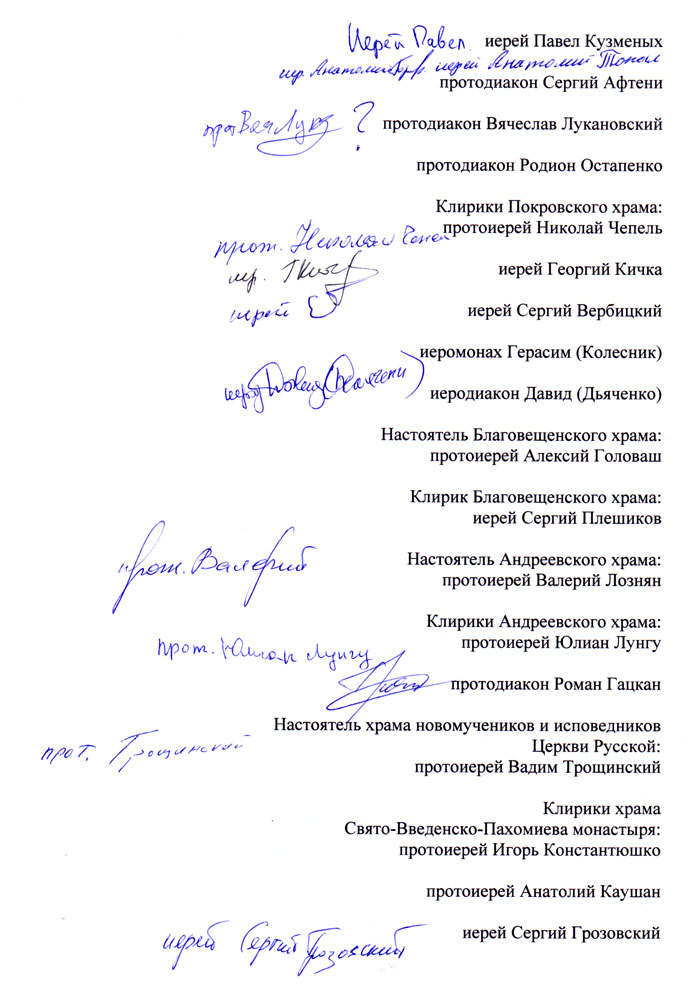 Иерей Павел иерей Павел Кузменых
иер. Анатолий иерей Анатолий
протодиакон Сергий Афтени
прот Вяч Лук ? протодиакон Вячеслав Лукановский
протодиакон Родион Остапенко
Клирики Покровского храма:
протоиерей Николай Чепель
прот. Николай
иерей Георгий Кичка
иер.
иерей Сергий Вербицкий
иерей
иеромонах Герасим (Колесник)
иеродиакон Давид (Дьяченко)
Настоятель Благовещенского храма:
протоиерей Алексий Головаш
Клирик Благовещенского храма:
иерей Сергий Плешиков
Настоятель Андреевского храма:
прот. Валерий протоиерей Валерий Лознян
Клирики Андреевского храма:
протоиерей Юлиан Лунгу
прот. Юлиан Лунгу
протодиакон Роман Гацкан
Настоятель храма новомучеников и исповедников
Церкви Русской:
прот. Трощинский протоиерей Вадим Трощинский
Клирики храма
Свято-Введенско-Пахомиева монастыря:
протоиерей Игорь Константюшко
протоиерей Анатолий Каушан
иерей Сергий Грозовский
иерей Сергий Грозовский